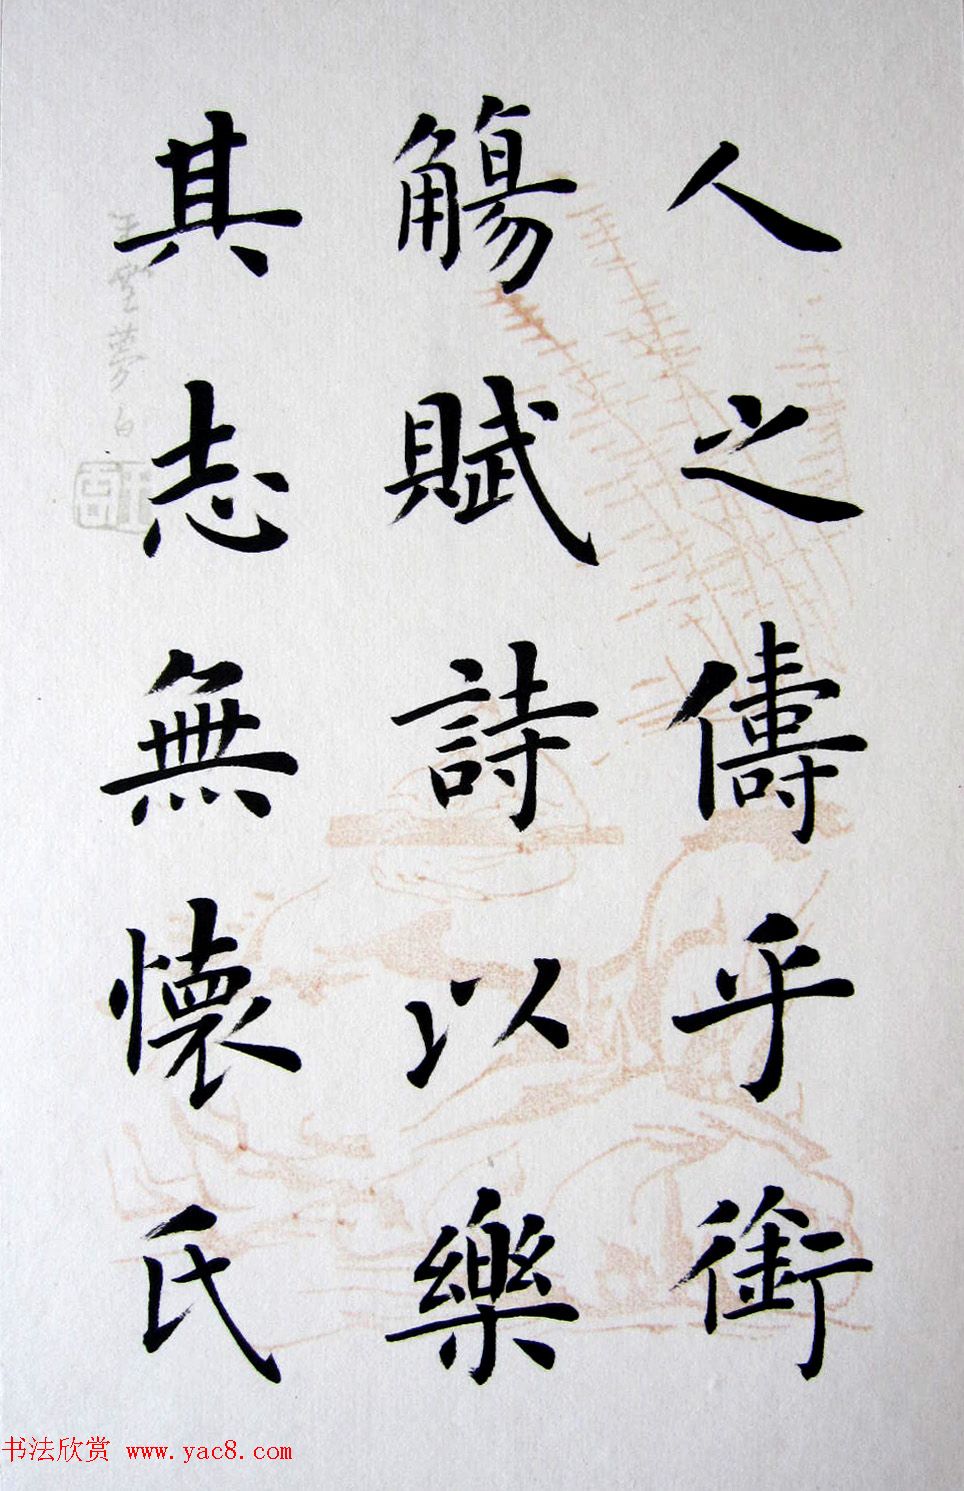 人之儔乎銜
觴賦詩以樂
其志無懷氏
王雲夢白
书法欣赏 www.yac8.com